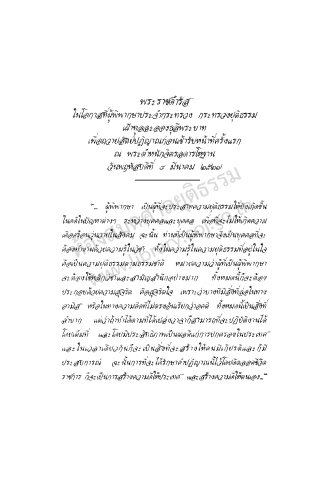 พระราชดำรัส
ในโอกาสที่ผู้พิพากษาประจำกระทรวง กระทรวงยุติธรรม
เฝ้าทูลละอองธุลีพระบาท
เพื่อถวายสัตย์ปฏิญาณก่อนเข้ารับหน้าที่ครั้งแรก
ณ พระตำหนักจิตรลดารโหฐาน
วันพฤหัสบดีที่ ๘ มีนาคม ๒๕๒๗
"... ผู้พิพากษา เป็นผู้ที่จะประสาทความยุติธรรมให้บังเกิดขึ้น
ในคดีในปัญหาต่างๆ ระหว่างบุคคลและบุคคล เพื่อที่จะไม่ให้เกิดความ
เดือดร้อนวุ่นวายในสังคม ฉะนั้น ท่านที่เป็นผู้พิพากษาจึงเป็นบุคคลที่จะ
ต้องทำงานด้วยความรู้ในวิชา ทั้งในความรู้ในความยุติธรรมที่อยู่ในใจ
คือเป็นความยุติธรรมตามธรรมชาติ หมายความว่าผู้ที่เป็นผู้พิพากษา
จะต้องใช้หลักวิชาและสามัญสำนึกอย่างมาก ทั้งหมดนี้ก็จะต้อง
ประกอบด้วยความสุจริต คือสุจริตใจ เพราะว่าบางทีมีสิ่งที่ล่อในทาง
อามิส หรือในทางความคิดที่ไม่ตรงอันเรียกว่าอคติ ทั้งหมดนี้เป็นสิ่งที่
ลำบาก แต่ว่าถ้าทำได้ตามที่ได้เปล่งวาจาก็สามารถที่จะปฏิบัติงานได้
โดยเต็มที่ และโดยมีประสิทธิภาพเป็นผลดีแก่การปกครองในประเทศ
และในเวลาเดียวกันก็จะเป็นสิ่งที่จะสร้างให้ตนมีเกียรติและก็มี
ประสบการณ์ ฉะนั้นการที่จะได้รักษาคำปฏิญาณนี้ไว้โดยตลอดชีวิต
ราชการ ก็จะเป็นการสร้างความดีให้ประเทศ และสร้างความดีให้ตนเอง..."